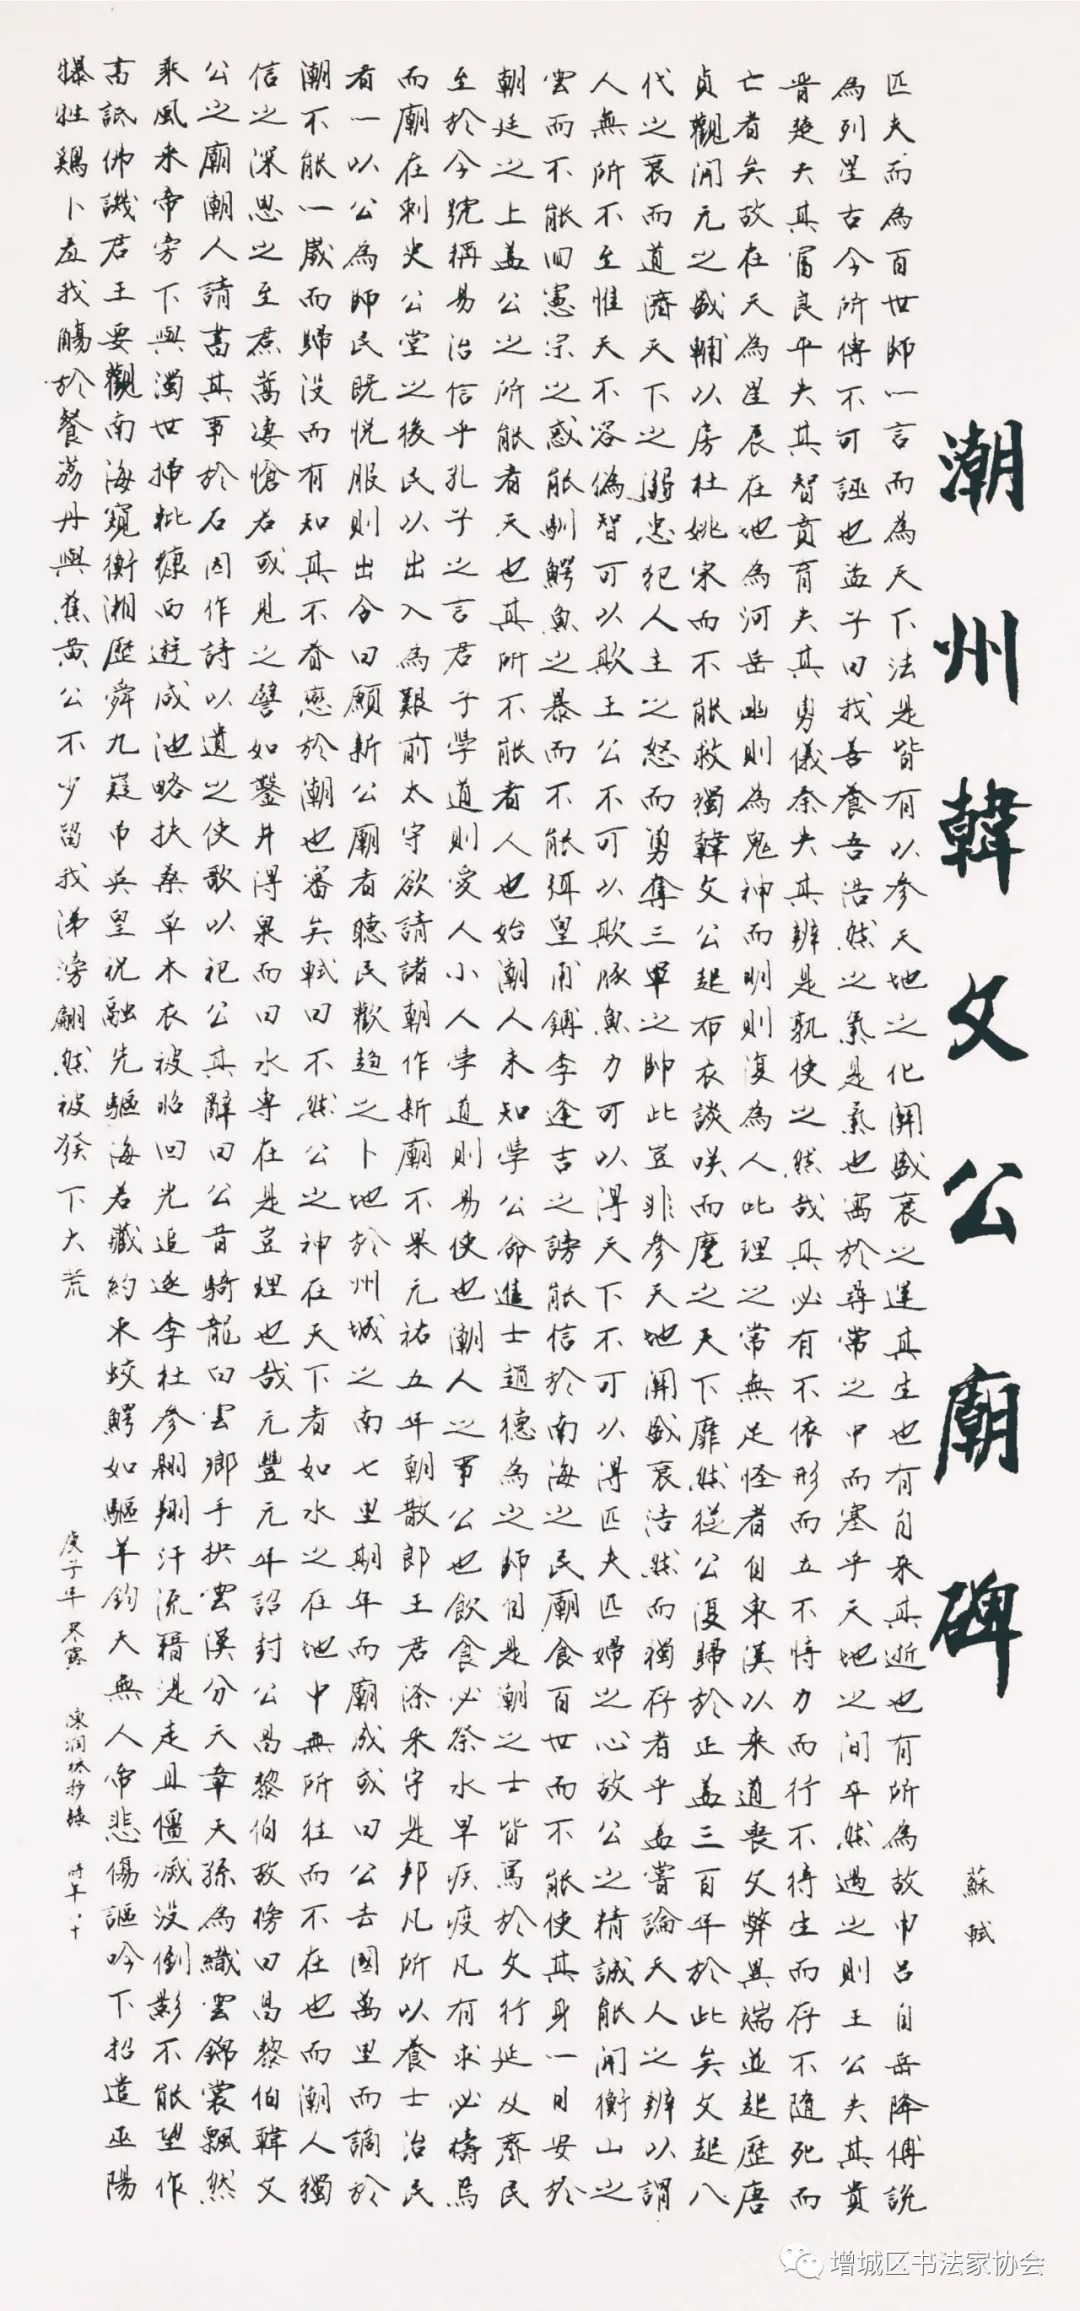 潮州韓文公廟碑
蘇軾
匹夫而為百世師一言而為天下法是皆有以參天地之化關盛衰之運其生也有自来其逝也有所為故申呂自岳降傅說
為列星古今所傳不可誣也孟子曰我善養吾浩然之氣是氣也寓於尋常之中而塞乎天地之間卒然遇之則王公失其貴
晋楚失其富良平失其智賁育失其勇儀秦失其辨是孰使之然哉其必有不依形而立不恃力而行不待生而存不隨死而
亡者矣故在天為星辰在地為河岳幽則為鬼神而明則復為人此理之常無足怪者自東漢以来道喪文弊異端並起歷唐
貞觀開元之盛輔以房杜姚宋而不能救獨韓文公起布衣談咲而麾之天下靡然從公復歸於正蓋三百年於此矣文起八
代之衰而道濟天下之溺忠犯人主之怒而勇奪三軍之帥此豈非參天地關盛衰浩然而獨存者乎蓋嘗論天人之辨以謂
人無所不至惟天不容偽智可以欺王公不可以欺豚魚力可以得天下不可以得匹夫匹婦之心故公之精誠能開衡山之
雲而不能回憲宗之惑能馴鰐魚之暴而不能弭皇甫鎛李逢吉之謗能信於南海之民廟食百世而不能使其身一日安於
朝廷之上蓋公之所能者天也其所不能者人也始潮人未知學公命進士趙德為之師自是潮之士皆篤於文行延及齊民
至於今號稱易治信乎孔子之言君子學道則愛人小人學道則易使也潮人之事公也飲食必祭水旱疾疫凡有求必禱焉
而廟在刺史公堂之後民以出入為艱前太守欲請諸朝作新廟不果元祐五年朝散郎王君滌来守是邦凡所以養士治民
者一以公為師民既悅服則出令曰願新公廟者聽民歡趨之卜地於州城之南七里期年而廟成或曰公去國萬里而謫於
潮不能一歲而歸没而有知其不眷戀於潮也審矣軾曰不然公之神在天下者如水之在地中無所往而不在也而潮人獨
信之深思之至焄蒿凄愴若或見之譬如鑿井得泉而曰水專在是豈理也哉元豐元年詔封公昌黎伯故榜曰昌黎伯韓文
公之廟潮人請書其事於石因作詩以遺之使歌以祀公其辭曰公昔騎龍白雲鄉手抉雲漢分天章天孫為織雲錦裳飄然
乘風来帝旁下與濁世掃粃糠西遊咸池略扶桑草木衣被昭回光追逐李杜參翱翔汗流籍湜走且僵滅没倒影不能望作
書詆佛譏君王要觀南海窺衡湘歷舜九嶷弔英皇祝融先驅海若藏約束蛟鰐如驅羊鈞天無人帝悲傷謳吟下招遣巫陽
犦牲鷄卜羞我觴於餐荔丹與蕉黄公不少留我涕滂翩然被髮下大荒
庚子年寒露 陳潤林抄錄 時年八十
增城区书法家协会